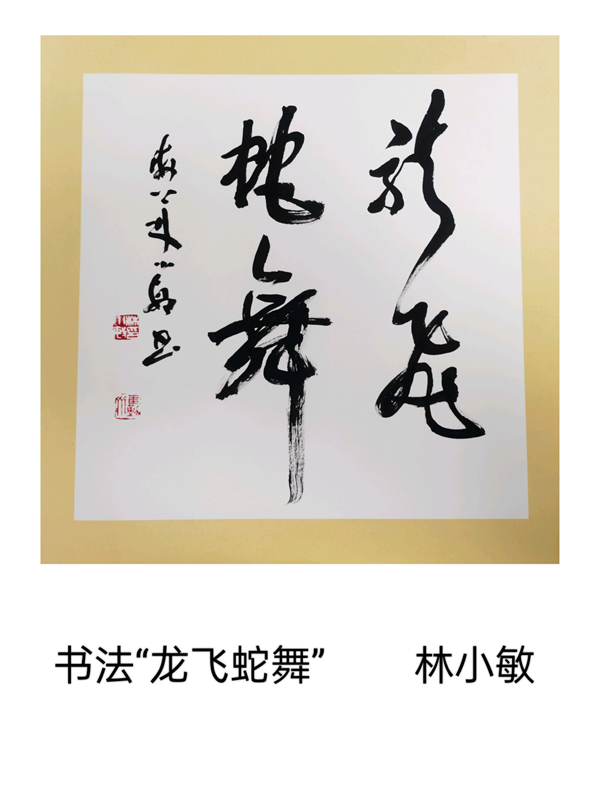 龍飛
蛇舞
小敏书
书法“龙飞蛇舞” 林小敏